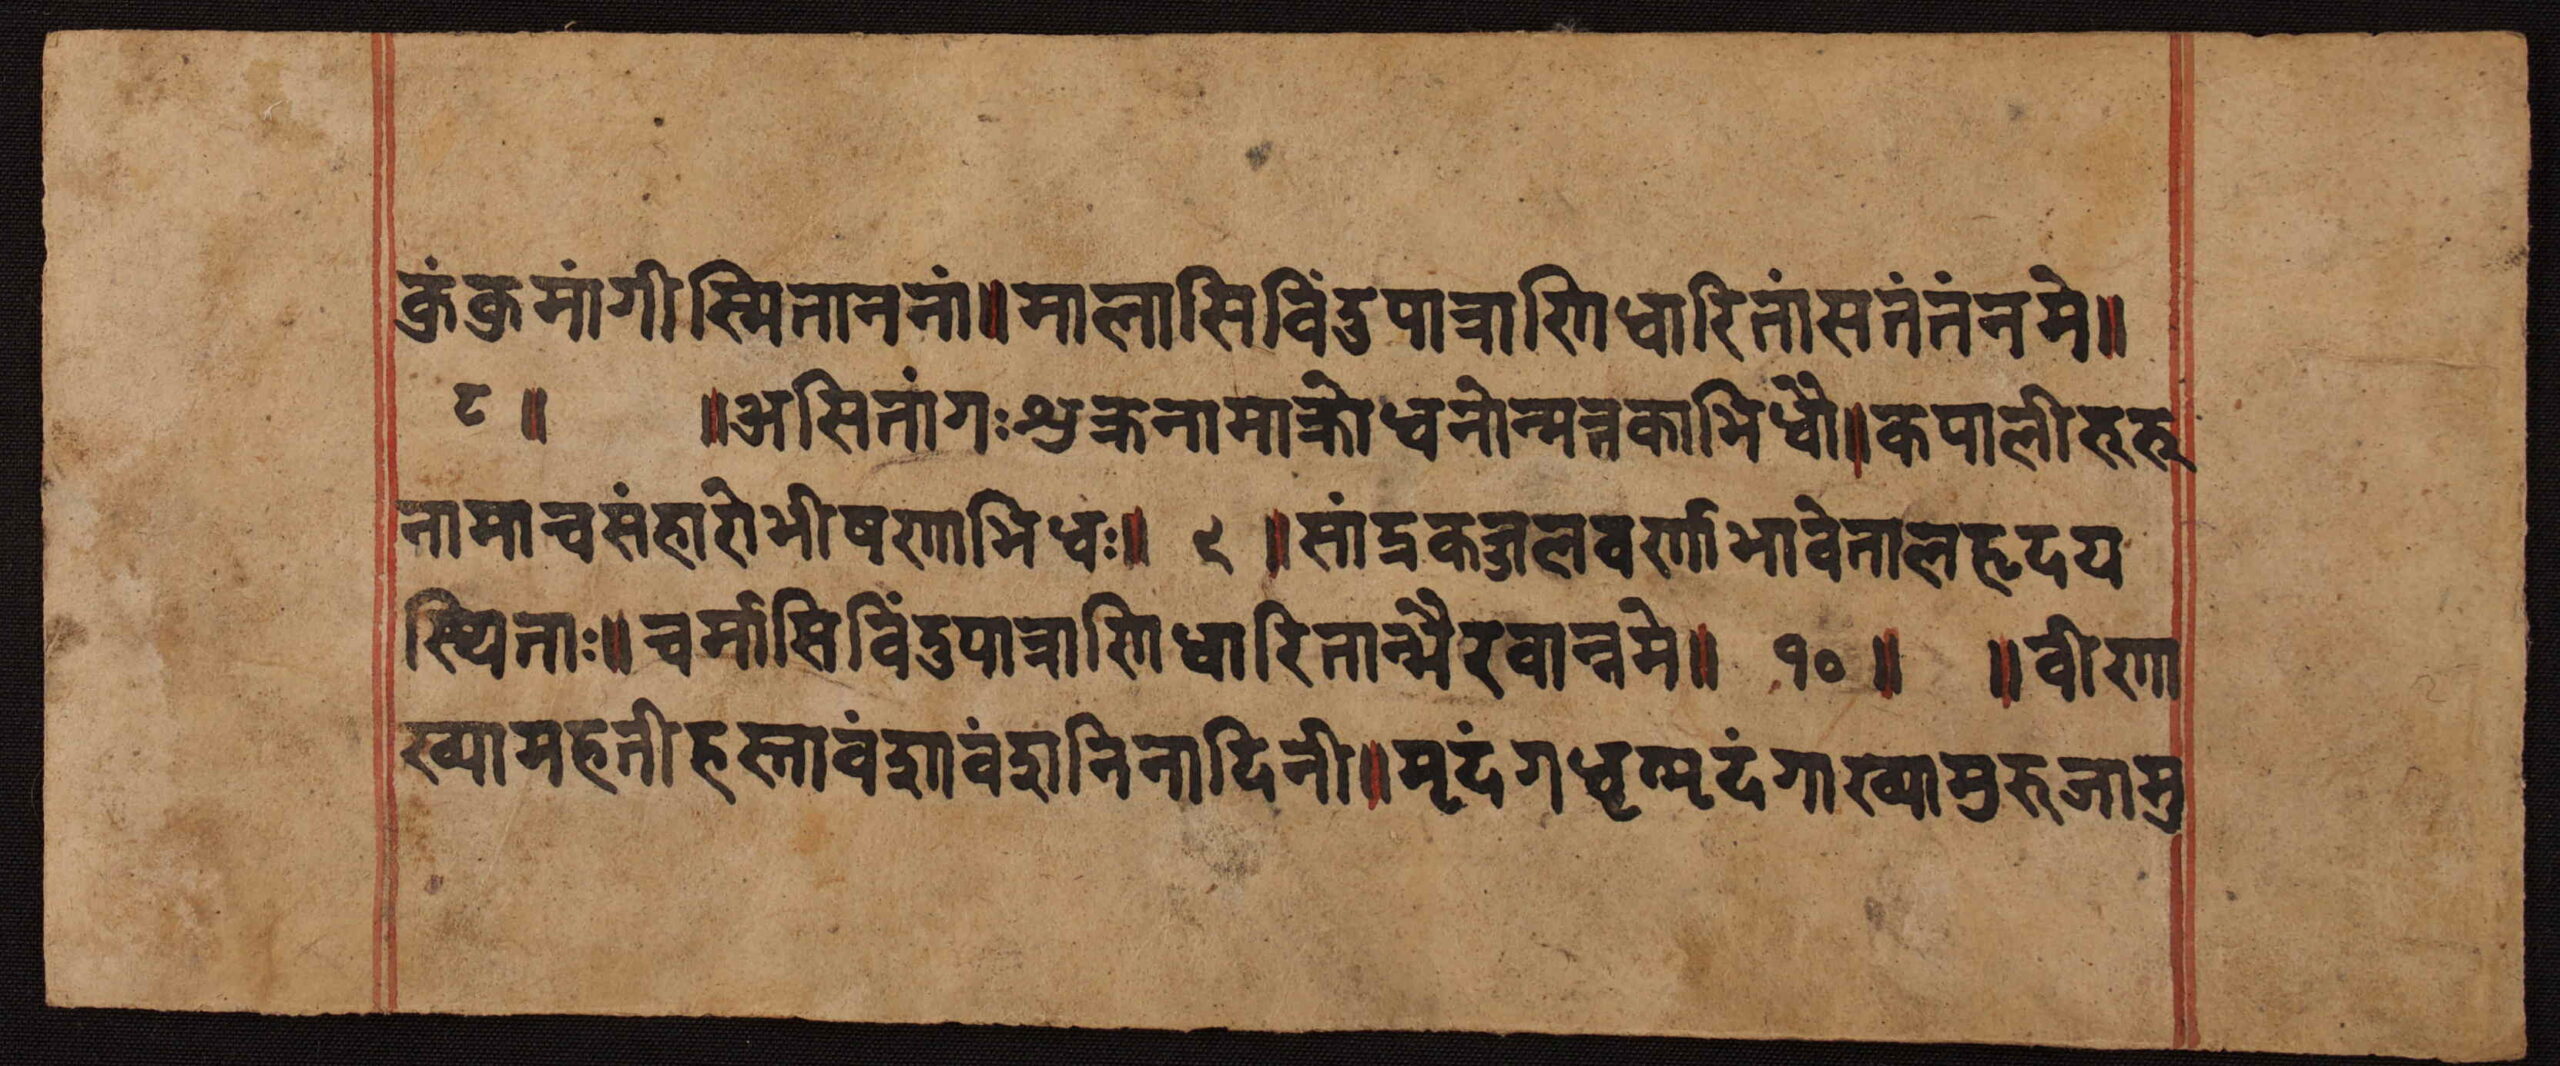 क्रुंक्रुमांगीस्मिताननां॥मालासिविंदुपात्राणिधारितांसतंतंनमे॥
८॥ ॥असितांगःश्रुक्रनामाक्रोध्वनोन्मत्तकाभिध्वौ॥कपालीरुरु
नामाचसंहारोभीषणाभिध्वः॥ ९ ॥सांद्रकज्जलवर्णाभावेतालहृदय
स्थिताः॥चर्मासिविंदुपात्राणिधारितान्भैरवान्नमे॥ १०॥ ॥वीणा
ख्यामहतीहस्तावंशावंशनिनादिनी॥मृदंगधृत्मृदंगाख्यामुरुजामु